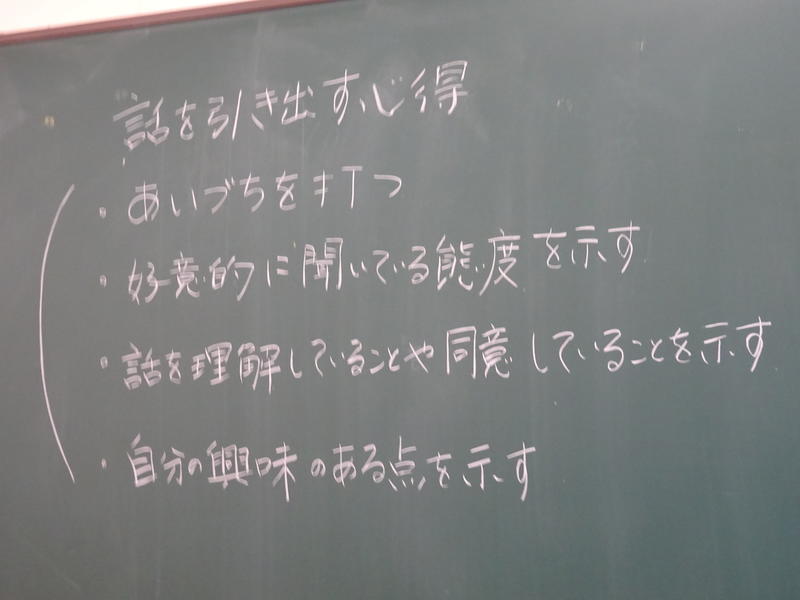 話を引き出す心得
・あいづちを打つ
・好意的に聞いている態度を示す
・話を理解していることや同意していることを示す
・自分の興味のある点を示す